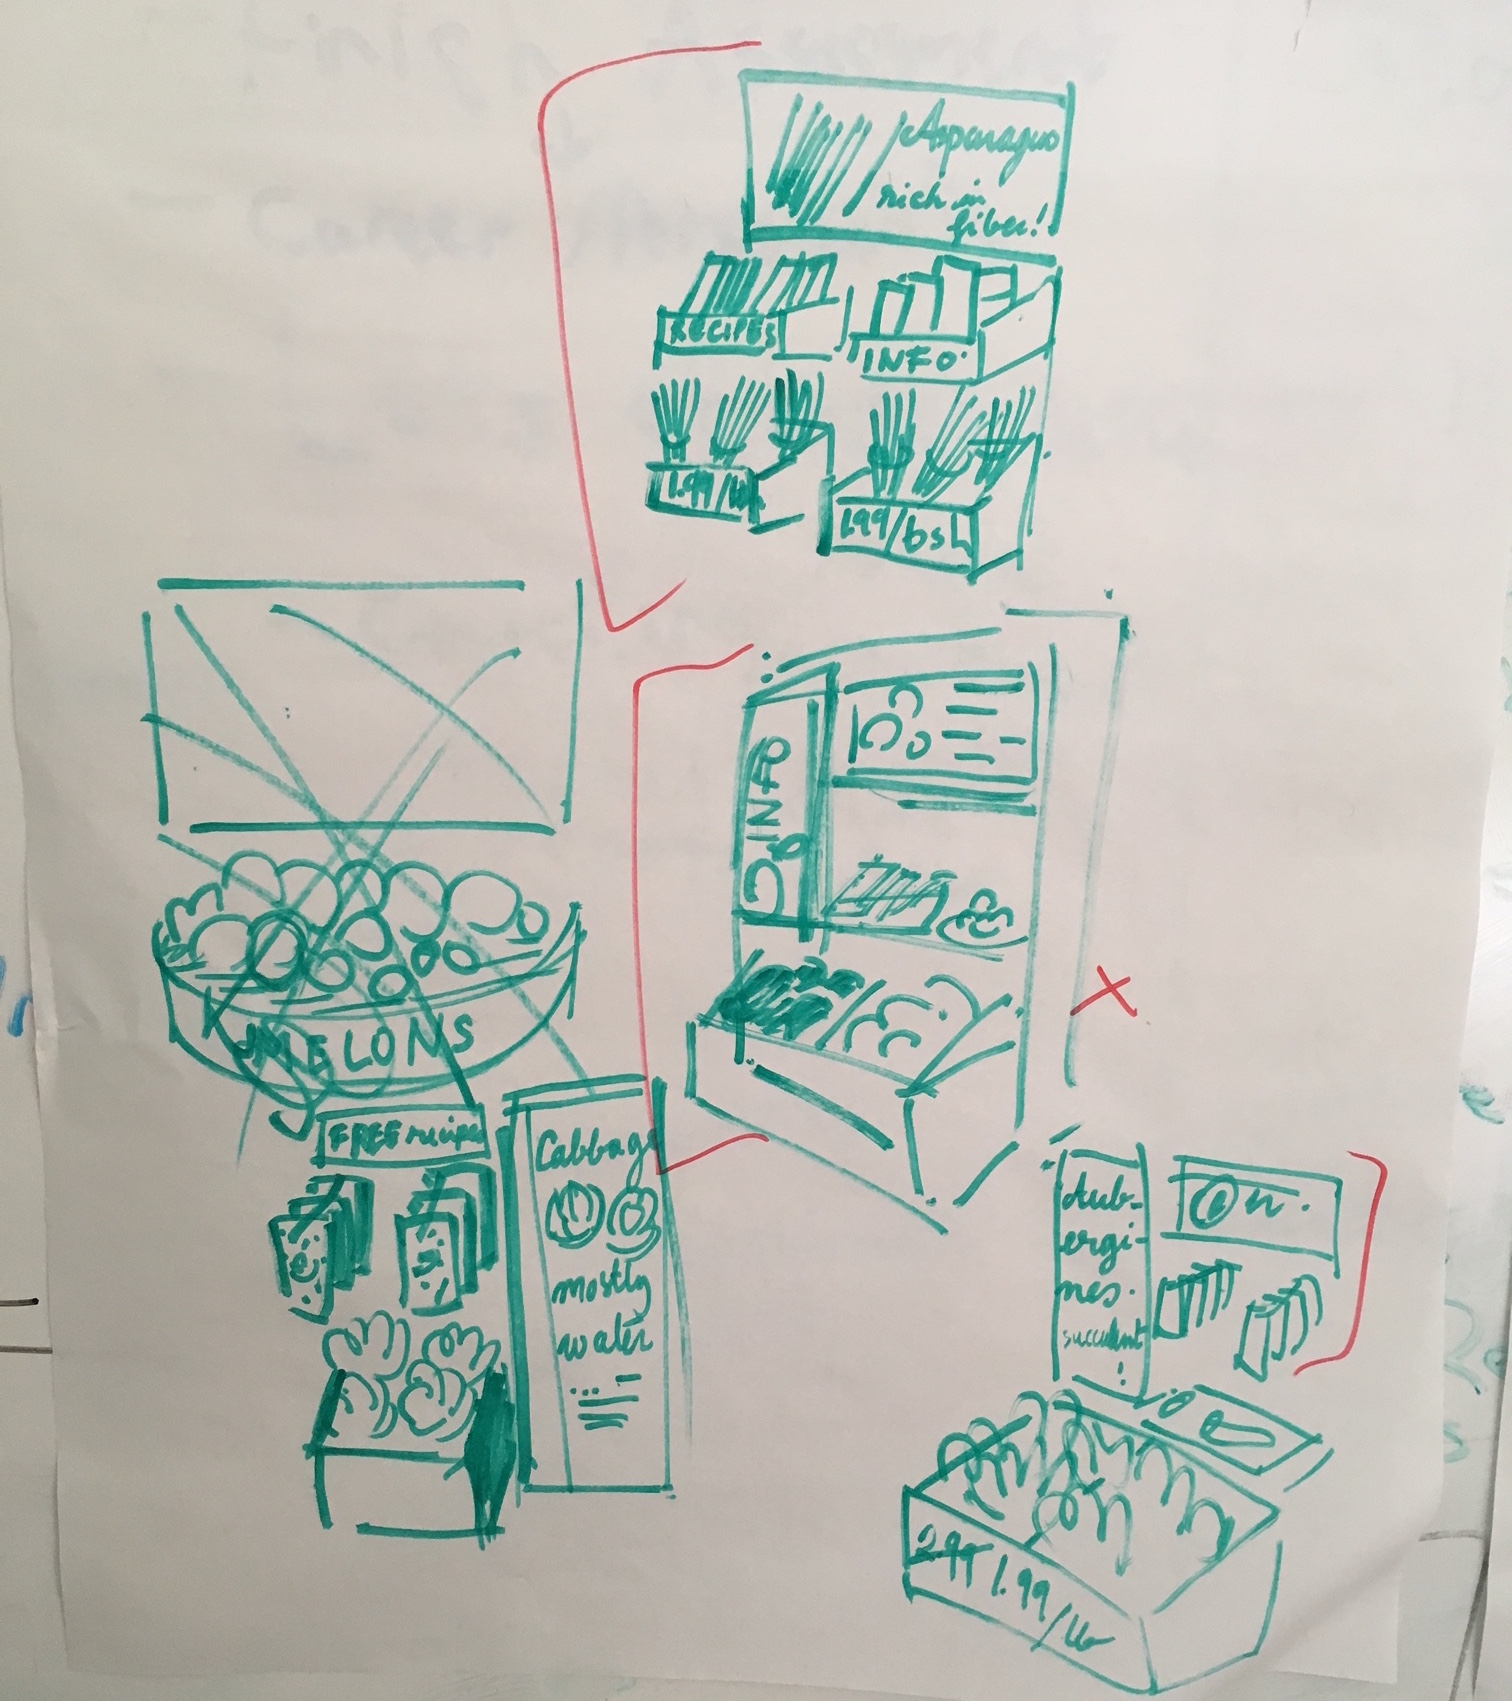 Asparagus
rich in
fiber!
RECIPES
INFO
1.99/
1.99/bsh
INFO
MELONS
FREE recipes
Cabbage
mostly
water
Aub-
ergi-
nes.
succulent
!
2.99 1.99/lb